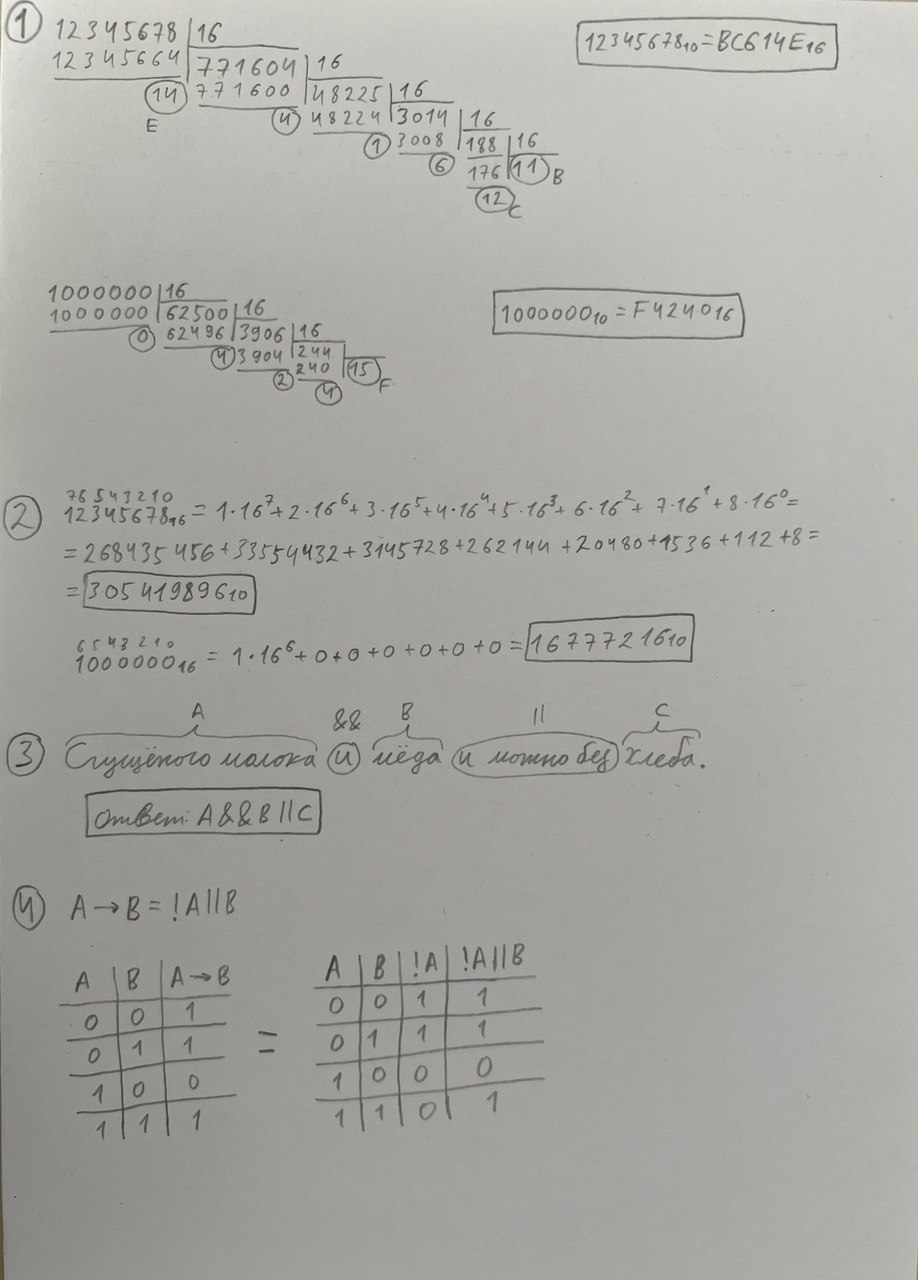 1
12345678 | 16
12345664 | 771604 | 16
14 771600 | 48225 | 16
E 4 48224 | 3014 | 16
1 3008 | 188 | 16
6 176 | 11 B
12 C
12345678₁₀ = BC614E₁₆
1000000 | 16
1000000 | 62500 | 16
0 62496 | 3906 | 16
4 3904 | 244
2 240 | 15 F
4
1000000₁₀ = F4240₁₆
2
7 6 5 4 3 2 1 0
12345678₁₆ = 1·16⁷ + 2·16⁶ + 3·16⁵ + 4·16⁴ + 5·16³ + 6·16² + 7·16¹ + 8·16⁰ =
= 268435456 + 33554432 + 3145728 + 262144 + 20480 + 1536 + 112 + 8 =
= 305419896₁₀
6 5 4 3 2 1 0
1000000₁₆ = 1·16⁶ + 0 + 0 + 0 + 0 + 0 + 0 = 16777216₁₀
A && B || C
3 Сгущёного молока и мёда и можно без хлеба.
Ответ: A && B || C
4 A → B = !A || B
A | B | A → B
0 | 0 | 1
0 | 1 | 1
1 | 0 | 0
1 | 1 | 1
=
A | B | !A | !A || B
0 | 0 | 1 | 1
0 | 1 | 1 | 1
1 | 0 | 0 | 0
1 | 1 | 0 | 1